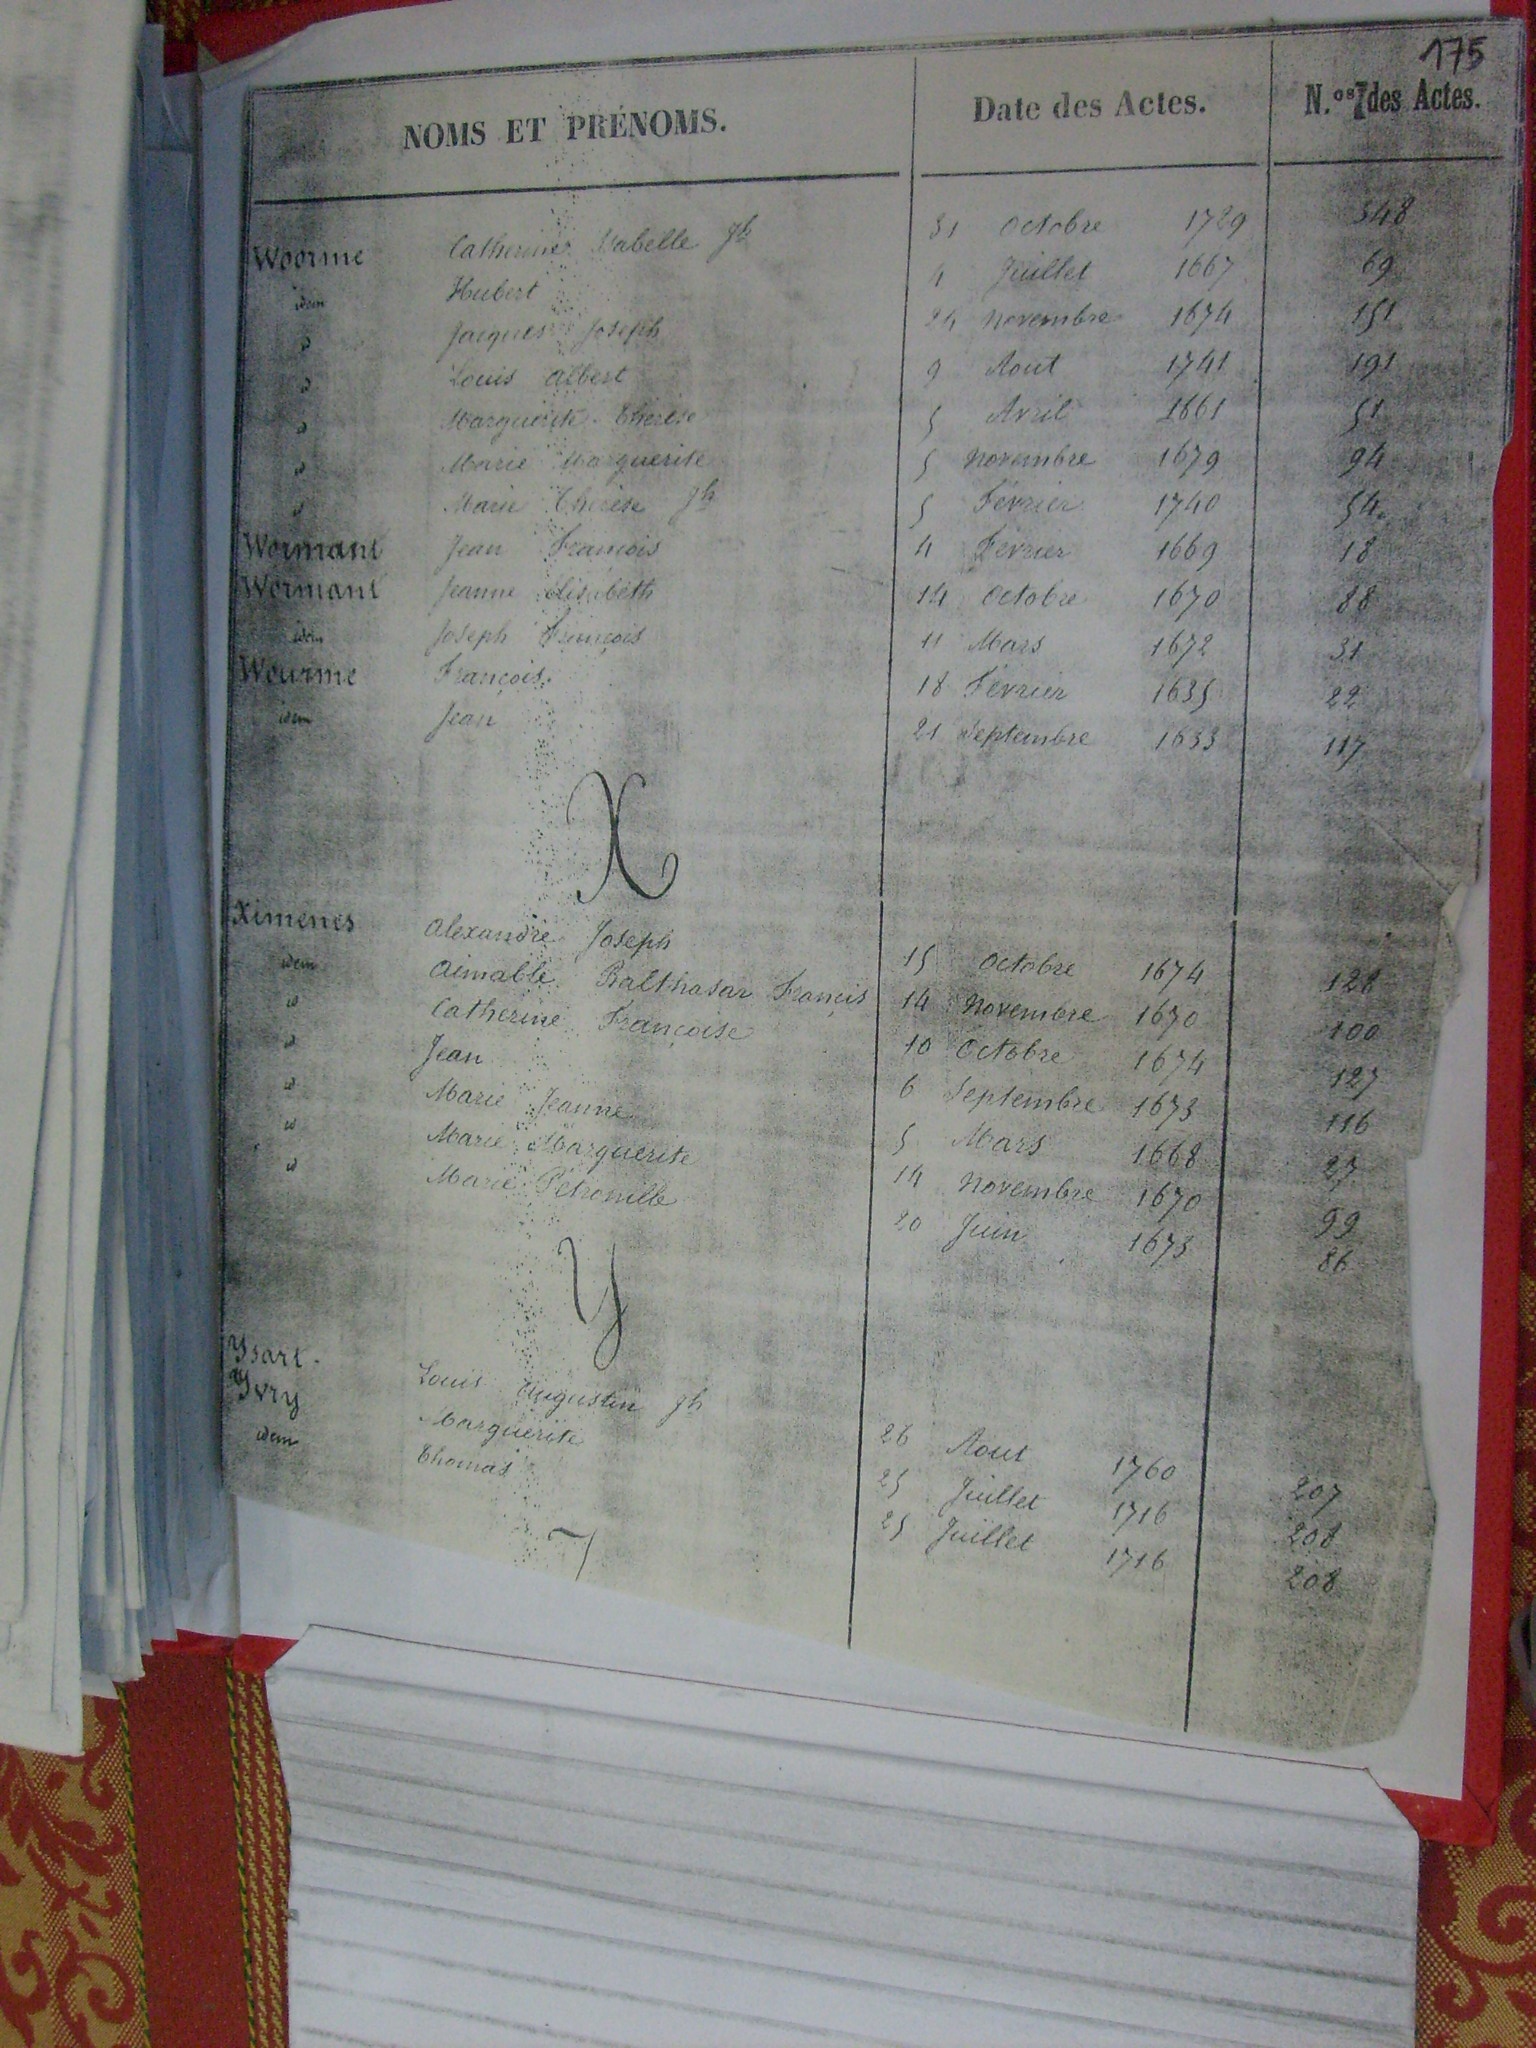 175
NOMS ET PRÉNOMS. Date des Actes. N.os des Actes.
Woorme Catherine Isabelle Jh 31 Octobre 1729 348
idem Hubert 4 Juillet 1667 69
id Jacques Joseph 24 Novembre 1674 151
id Louis Albert 9 Aout 1741 191
id Marguerite Thérèse 5 Avril 1661 51
id Marie Marguerite 5 Novembre 1679 94
id Marie Thérèse Jh 5 Février 1740 54
Wormant Jean François 4 Février 1669 18
Wormant Jeanne Elisabeth 14 Octobre 1670 88
idem Joseph François 11 Mars 1672 31
Wourme François 18 Février 1635 22
idem Jean 21 Septembre 1633 117
X
Ximenes Alexandre Joseph 15 Octobre 1674 128
idem Aimable Balthasar François 14 Novembre 1670 100
id Catherine Françoise 10 Octobre 1674 127
id Jean 6 Septembre 1673 116
id Marie Jeanne 5 Mars 1668 27
id Marie Marguerite 14 Novembre 1670 99
id Marie Petronille 20 Juin 1673 86
Y
Ysart Louis Augustin Jh 26 Aout 1760 207
Yvry Marguerite 25 Juillet 1716 208
idem Thomas 25 Juillet 1716 208